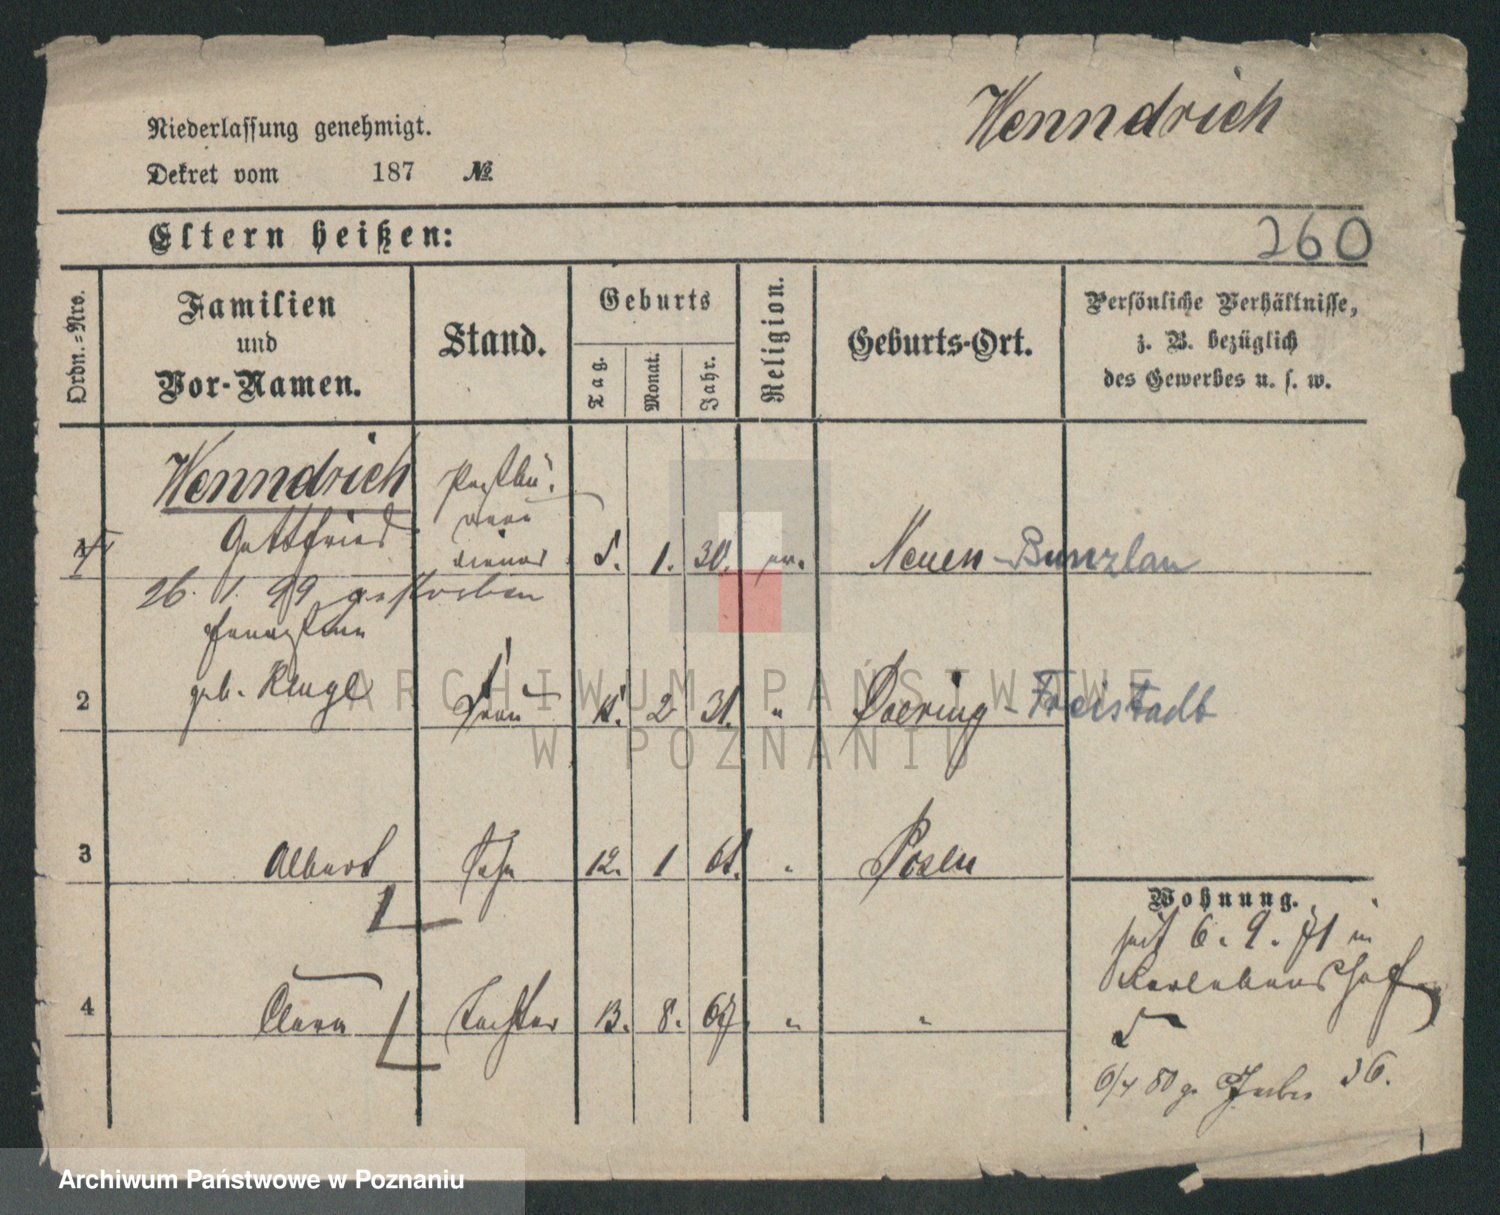 Wenndrich
Niederlassung genehmigt.
Dekret vom 187 №
Eltern heißen:
260
Ordn.=Nro.
Familien
und
Vor-Namen.
Stand.
Geburts
Tag.
Monat.
Jahr.
Religion.
Geburts-Ort.
Persönliche Verhältnisse,
z. B. bezüglich
des Gewerbes u. s. w.
Wenndrich
Gottfried
1 5. 1. 30. ev. Neuen-Bunzlau
26. 1. 99 gestorben
geb.
2 Frau 2 31. " Doering-Freistadt
3 Albert Sohn 12. 1 61. " Posen
Wohnung.
seit 6. 9. 71 in
4 Clara Tochter 13. 8. 67 " "
36.
ARCHIWUM PAŃSTWOWE
W POZNANIU
Archiwum Państwowe w Poznaniu